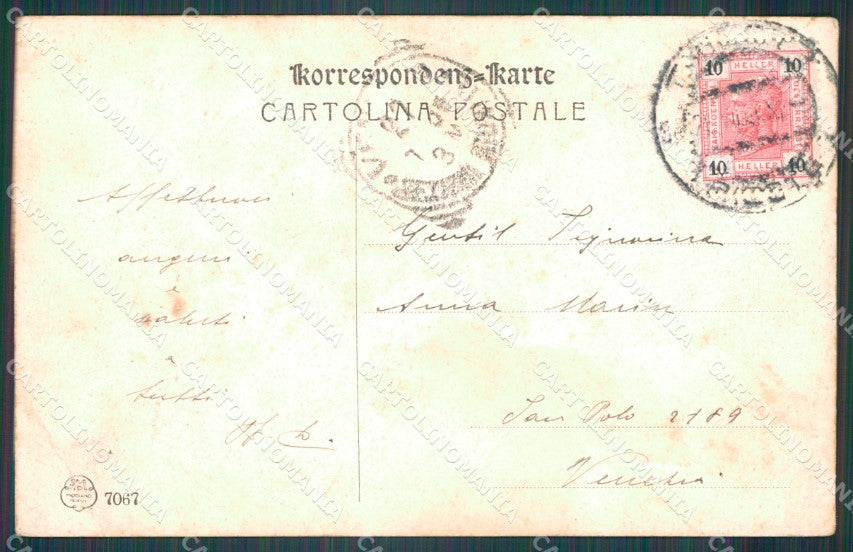 Korrespondenz=Karte
CARTOLINA POSTALE
10 10
HELLER
HELLER
10 10
Affettuosi
auguri
e
saluti
a
tutti
Gentil Signorina
Anna Marin
San Polo 2189
Venezia
7067
CARTOLINOMANIA